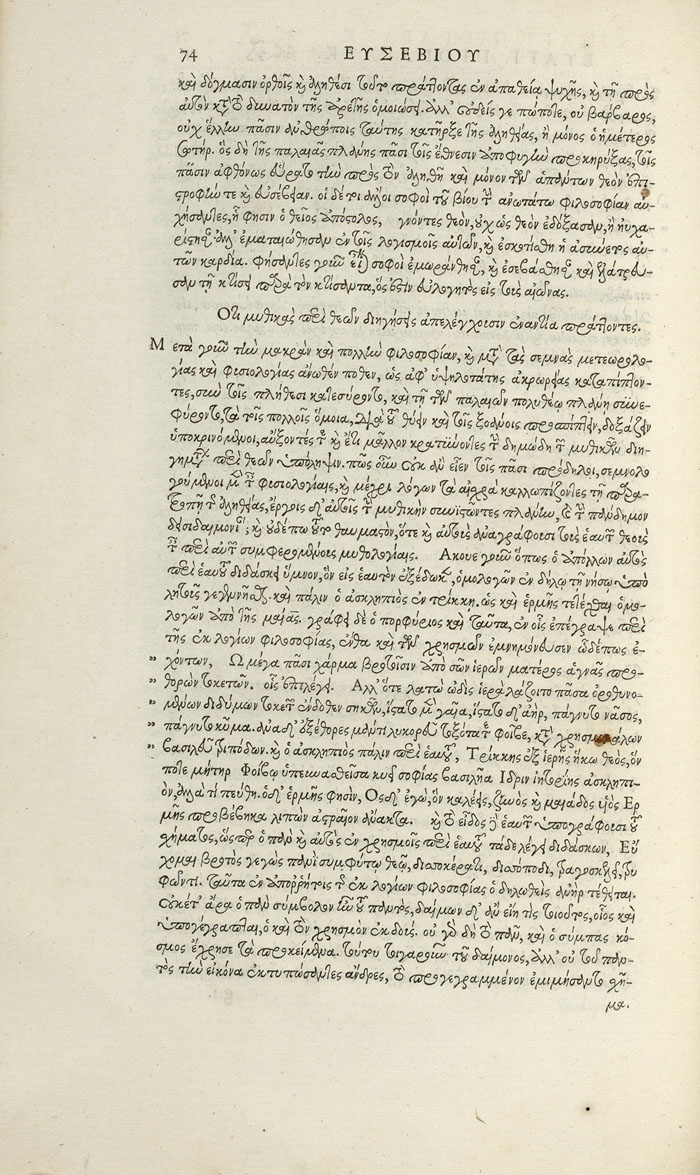 74 ΕΥΣΕΒΙΟΥ
καὶ δόγμασιν ὀρθοῖς καὶ ἀληθέσι τοῦτο πράττοντας ἐν ἀπαθείᾳ ψυχῆς, καὶ τῇ πρὸς
αὐτὸν κατὰ τὸ δυνατὸν τῆς ἀρετῆς ὁμοιώσει. ἀλλ' οὐδείς γε πώποτε, οὐ βάρβαρος,
οὐχ ἕλλην πᾶσιν ἀνθρώποις ταύτης κατῆρξε τῆς ἀληθείας, ἢ μόνος ὁ ἡμέτερος
σωτήρ. ὃς δὴ τῆς παλαιᾶς πλάνης πᾶσι τοῖς ἔθνεσιν ἀποφυγὴν προκηρύξας, τοῖς
πᾶσιν ἀφθόνως εὕρατο τὴν πρὸς τὸν ἀληθῆ καὶ μόνον τῶν ἁπάντων θεὸν ἐπι-
στροφήν τε καὶ εὐσέβειαν. οἱ δέ τοι δεινοὶ σοφοὶ τοῦ βίου τὴν ἀνωτάτω φιλοσοφίαν αὐ-
χήσαντες, ᾗ φησιν ὁ θεῖος ἀπόστολος, γνόντες θεὸν, οὐχ ὡς θεὸν ἐδόξασαν, ἢ ηὐχα-
ρίστησαν, ἀλλ' ἐματαιώθησαν ἐν τοῖς λογισμοῖς αὐτῶν, καὶ ἐσκοτίσθη ἡ ἀσύνετος αὐ-
τῶν καρδία. φήσαντες γοῦν εἶναι σοφοὶ ἐμωράνθησαν, καὶ ἐσεβάσθησαν καὶ ἐλάτρευ-
σαν τῇ κτίσει παρὰ τὸν κτίσαντα, ὅς ἐστιν εὐλογητὸς εἰς τοὺς αἰῶνας.
Ὅτι μυθικὰς περὶ θεῶν διηγήσεις ἀπελέγχουσιν ἐναντία πράττοντες.
Μετὰ γοῦν τὴν μακρὰν καὶ πολλὴν φιλοσοφίαν, καὶ μετὰ τὰς σεμνὰς μετεωρολο-
γίας καὶ φυσιολογίας ἄνωθέν ποθεν, ὡς ἀφ' ὑψηλοτάτης ἀκρωρείας καταπίπτον-
τες, σὺν τοῖς πλήθεσι κατεσύροντο, καὶ τῇ τῶν παλαιῶν πολυθέῳ πλάνῃ συνε-
φύροντο, τὰ τοῖς πολλοῖς ὅμοια, διὰ τοῦ θύειν καὶ τοῖς ξοάνοις προσπίπτειν, δοξάζειν
ὑποκρινόμενοι, αὔξοντές τε καὶ ἔτι μᾶλλον κρατύνοντες τὴν δημώδη τῶν μυθικῶν διη-
γημάτων περὶ θεῶν ὑπόληψιν. πῶς οὖν οὐκ ἂν εἶεν τοῖς πᾶσι πρόδηλοι, σεμνολο
γούμενοι μὲν ταῖς φυσιολογίαις, καὶ μέχρι λόγων τὰ αἰσχρὰ καλλωπίζοντες τῇ παρα-
τροπῇ τῆς ἀληθείας, ἔργοις δ' αὐτοῖς τὴν μυθικὴν συνιστῶντες πλάνην, καὶ τὴν πάνδημον
δεισιδαιμονίαν; καὶ οὐδέπω τοῦτο θαυμαστὸν, ὅτε καὶ αὐτοὺς ἀναγράφουσι τοὺς ἑαυτῶν θεοὺς
ταῖς περὶ αὐτῶν συμφερομένους μυθολογίαις. Ἄκουε γοῦν ὅπως ὁ ἀπόλλων αὐτὸς
περὶ ἑαυτοῦ διδάσκει ὕμνον, ὃν εἰς ἑαυτὸν ἐξέδωκεν, ὁμολογῶν ἐν δήλῳ τῇ νήσῳ ὑπὸ
λητοῦς γεγεννῆσθαι. καὶ πάλιν ὁ ἀσκληπιὸς ἐν τρίκκῃ, ὡς καὶ ἑρμῆς τετέχθαι ὁμο-
λογῶν ὑπὸ τῆς μαίας. γράφει δὲ ὁ πορφύριος καὶ ταῦτα, ἐν οἷς ἐπέγραψε περὶ
τῆς ἐκ λογίων φιλοσοφίας, ἔνθα καὶ τῶν χρησμῶν ἐμνημόνευσεν ὧδέπως ἐ-
χόντων, Ὦ μέγα πᾶσι χάρμα βροτοῖσιν ἀπὸ σῶν ἱερῶν ματέρος ἁγνᾶς προ-
θορὼν τοκετῶν. οἷς ἐπιλέγει. Ἀλλ' ὅτε λατὼ ὠδὶς ἱερὰ λάζοιτο πᾶσα ὀρεθυνο-
μένων διδύμων τοκετῶν ἔνδοθεν σηκῶν, ἵστατο μὲν γαῖα, ἵστατο δ' ἀὴρ, πάγνυτο νᾶσος,
πάγνυτο κῦμα. ἀνὰ δ' ἐξέθορες μάντι λυκωρεῦ τοξότα φοῖβε, κατὰ χρησμῳδάλων
βασιλεῦ τριπόδων. καὶ ὁ ἀσκληπιὸς πάλιν περὶ ἑαυτοῦ, Τρίκκης ἐξ ἱερῆς ἥκω θεὸς, ὅν
ποτε μήτηρ Φοίβῳ ὑπευναθεῖσα κύει σοφίας βασιλῆα Ἴδριν ἰητορίης ἀσκληπι-
ὸν, ἀλλὰ τί πεύθῃ. ὁ δ' ἑρμῆς φησὶν, Ὃς δ' ἐγὼ, ὃν καλέεις, ζηνὸς καὶ μαιάδος υἱὸς Ἑρ
μῆς προβέβηκα λιπὼν ἀστραῖον ἄνακτα. καὶ τὸ εἶδος δὲ ἑαυτῶν ὑπογράφουσι τοῦ
σχήματος, ὥσπερ ὁ πὰν καὶ αὐτὸς ἐν χρησμοῖς περὶ ἑαυτοῦ τάδε λέγει διδάσκων, Εὔ
χομαι βροτὸς γεγὼς πανὶ συμφύτῳ θεῷ, δισσοκέρατι, δισσόποδι, τραγοσκελεῖ, τρυ
φῶντι. ταῦτα ἐν ἀπορρήτοις τῆς ἐκ λογίων φιλοσοφίας ὁ δηλωθεὶς ἀνὴρ τέθειται.
Οὐκέτ' ἄρα ὁ πὰν σύμβολον ἦν τοῦ παντὸς, δαίμων δ' ἂν εἴη τις τοιοῦτος, οἷος καὶ
ὑπογέγραπται, ὁ καὶ τὸν χρησμὸν ἐκδούς. οὐ γὰρ δὴ τὸ πᾶν, καὶ ὁ σύμπας κό-
σμος ἔχρησε τὰ προκείμενα. τούτου τοιγαροῦν τοῦ δαίμονος, ἀλλ' οὐ τοῦ παν-
τὸς τὴν εἰκόνα ἐκτυπώσαντες ἄνδρες, τὸ προγεγραμμένον ἐμιμήσαντο σχῆ-
μα.